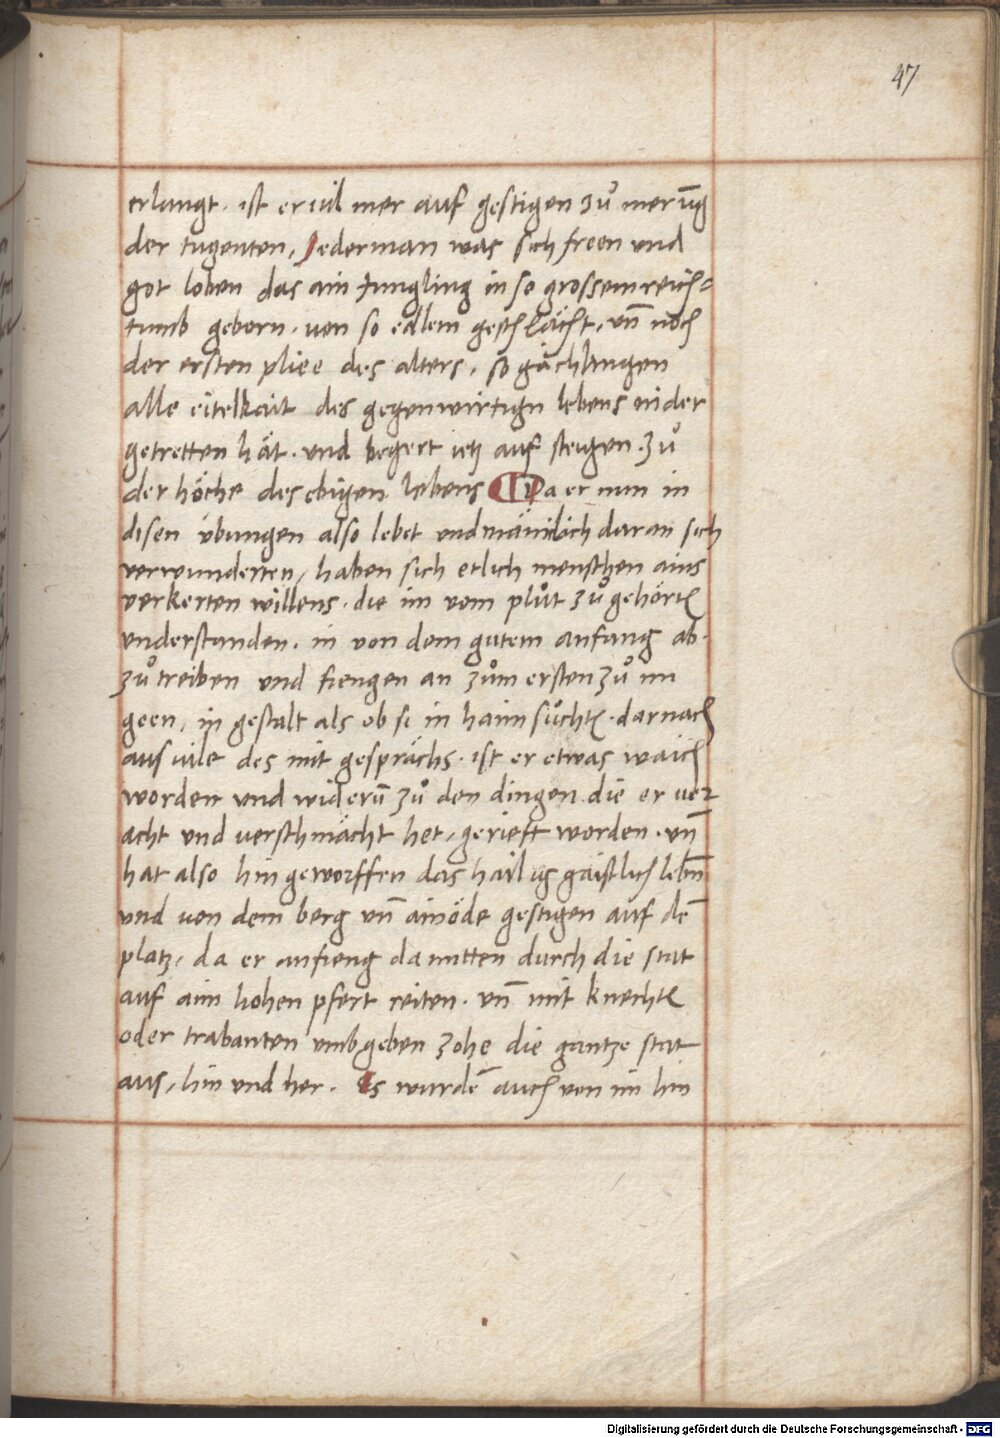 47
erlangt. ist er uil mer auf gestigen zů merūg
der tugenten, Jederman was sich freen und
got loben das ain Jungling in so grossem reich=
tumb geborn. von so edlem geschlächt, vn̄ noch
der ersten pliee des alters, so gächlingen
alle eitelkait des gegenwirtign lebens nider
getretten hät. und begert ietz auf steigen. zů
der höche des ebigen lebens Da er nun in
disen übungen also lebet und mäniklich daran sich
verwunderten, haben sich etlich menschen ains
verkerten willens. die im vom plůt zů gehörtē
understanden. in von dem gutem anfang ab-
zů treiben und fiengen an zům ersten zů im
geen, in gestalt als ob si in haim sůchtē. darnach
aus uile des mit gesprächs. ist er etwas waich
worden und widerū zů den dingen die er ver
acht und verschmächt het, gerieft worden. vn̄
hat also hin geworffen das hailig gaistlich lebn̄
und von dem berg vn̄ ainöde gestigen auf dē
platz, da er anfieng da mitten durch die stat
auf aim hohen pfert reiten. vn̄ mit knechtē
oder trabanten umbgeben zohe die gantze stat
aus, hin und her. Es wurdē auch von im hin
Digitalisierung gefördert durch die Deutsche Forschungsgemeinschaft - DFG